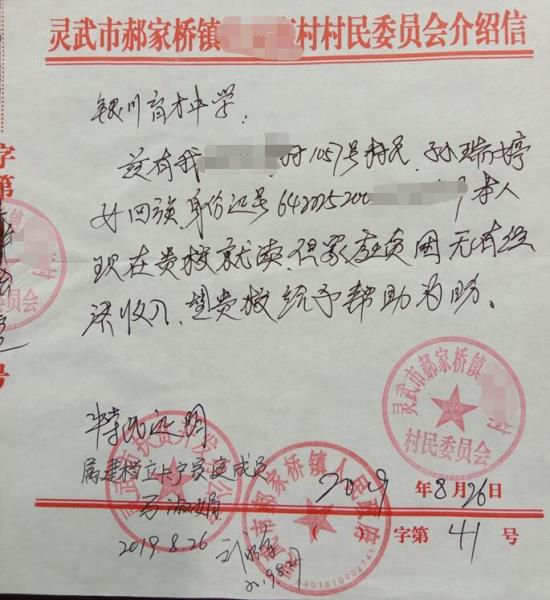 灵武市郝家桥镇 村村民委员会介绍信
银川育才中学:
兹有我 村1057号村民 孙瑞婷
女 回族 身份证号 642225200 本人
现在贵校就读,但家庭贫困无有经
济收入,望贵校给予帮助为盼。
灵武市郝家桥镇
村民委员会
特此证明
属建档立卡户家庭成员
马淑娟
2019.8.26
2019年8月26日
字第 41 号
灵武市郝家桥镇人民政府
6401810002741
字第
号